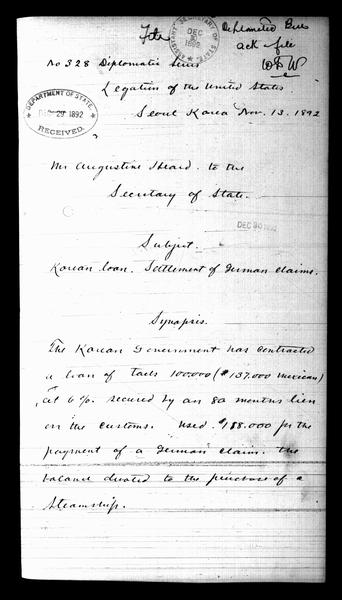 Diplomatic Bureau
ack & file
No 328 Diplomatic Series
Legation of the United States
Seoul Korea Nov. 13. 1892
DEPARTMENT OF STATE
DEC 29 1892
RECEIVED.
Mr Augustine Heard. to the
Secretary of State.
DEC 30 1892
Subject.
Korean loan. Settlement of German claims.
Synopsis.
The Korean Government has contracted
a loan of taels 100.000 ($137.000 Mexican)
at 6%. secured by an 80 months lien
on the customs. Used $ for the
payment of a German claim. The
balance devoted to the purchase of a
Steamship.